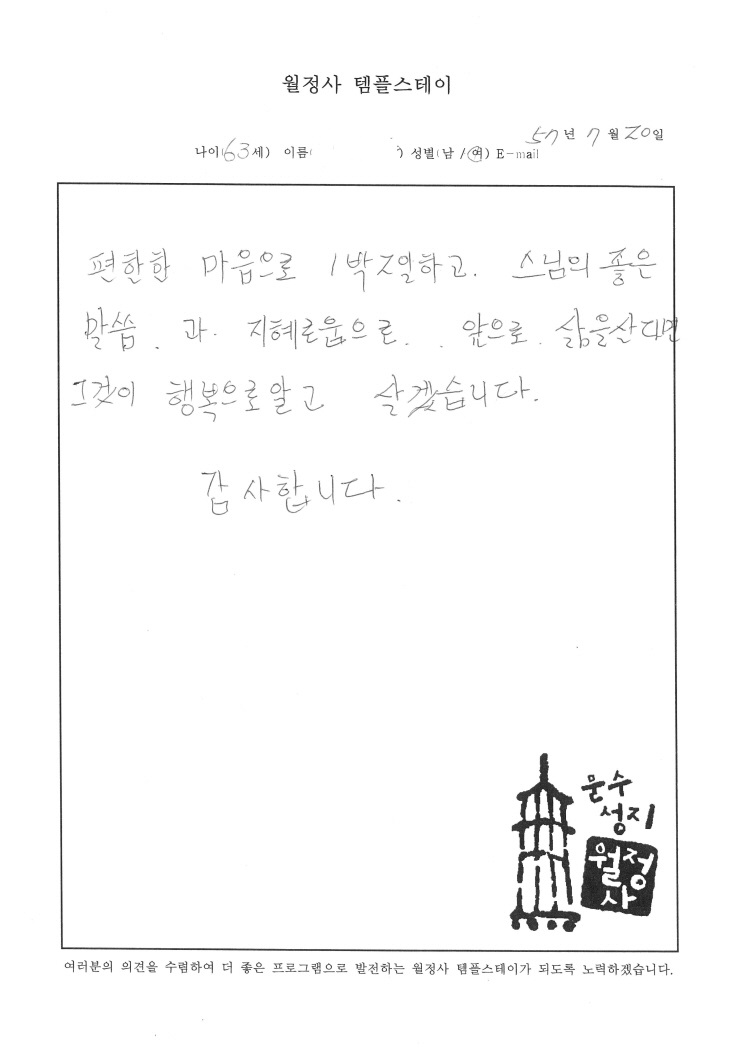 월정사 템플스테이
57년 7월 20일
나이(63세) 이름( ) 성별(남 /여) E-mail
편한한 마음으로 1박2일하고. 스님의 좋은
말씀. 과. 지혜로움으로. . 앞으로. 삶을산다면
그것이 행복으로알고 살겠습니다.
감사합니다.
문수
성지
월정
사
여러분의 의견을 수렴하여 더 좋은 프로그램으로 발전하는 월정사 템플스테이가 되도록 노력하겠습니다.